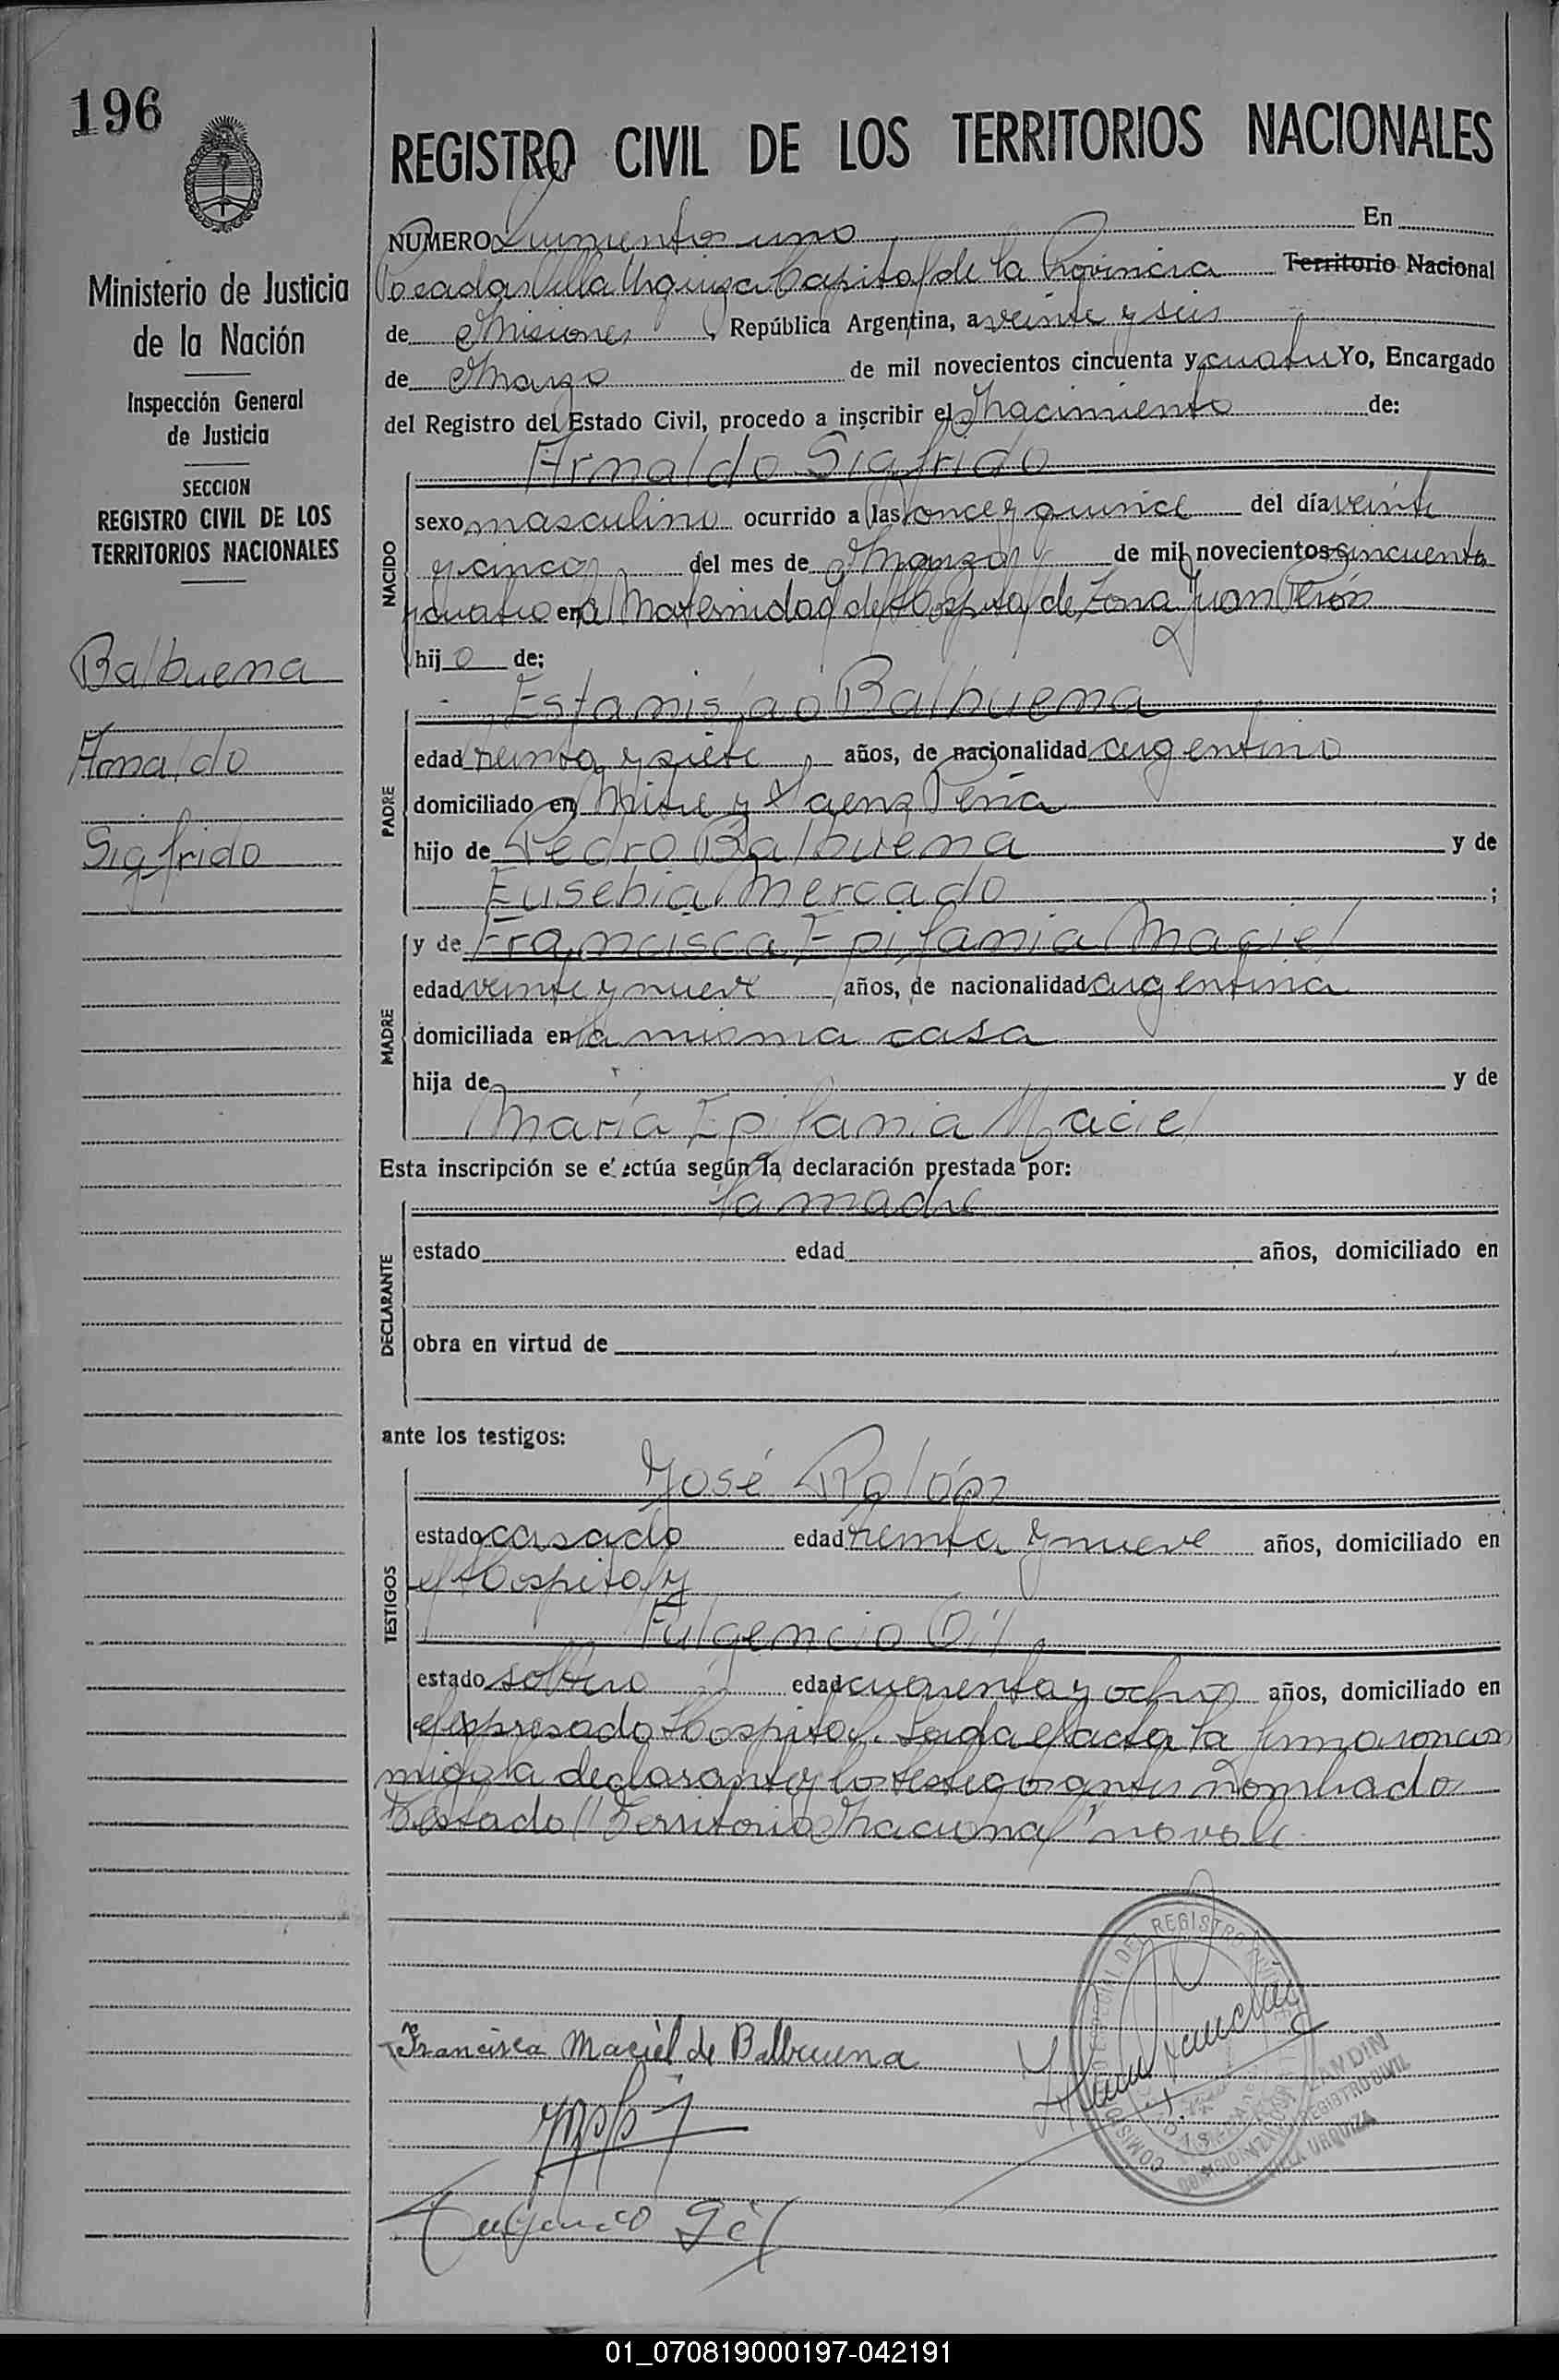 196
Ministerio de Justicia
de la Nación
Inspección General
de Justicia
SECCION
REGISTRO CIVIL DE LOS
TERRITORIOS NACIONALES
Balbuena
Arnaldo
Sigfrido
REGISTRO CIVIL DE LOS TERRITORIOS NACIONALES
NUMERO Quinientos uno En
Posadas Villa Urquiza Capital de la Provincia Territorio Nacional
de Misiones, República Argentina, a veinte y seis
de Marzo de mil novecientos cincuenta y cuatro Yo, Encargado
del Registro del Estado Civil, procedo a inscribir el Nacimiento de:
NACIDO
Arnaldo Sigfrido
sexo masculino ocurrido a las once y quince del día veinte
y cinco del mes de Marzo de mil novecientos cincuenta
y cuatro en la Maternidad del Hospital de Zona Juan Perón
hijo de:
PADRE
Estanislao Balbuena
edad treinta y siete años, de nacionalidad argentino
domiciliado en Mitre y Saenz Peña
hijo de Pedro Balbuena y de
Eusebia Mercado ;
MADRE
y de Francisca Epifania Maciel
edad veinte y nueve años, de nacionalidad argentina
domiciliada en la misma casa
hija de y de
María Epifania Maciel
Esta inscripción se efectúa según la declaración prestada por:
DECLARANTE
la madre
estado edad años, domiciliado en
obra en virtud de
ante los testigos:
TESTIGOS
José
estado casado edad treinta y nueve años, domiciliado en
el Hospital y
Fulgencio Gil
estado soltero edad cuarenta y ocho años, domiciliado en
el expresado Hospital. Leida el acta la firmaron con
migo la declarante y los testigos antes nombrado
Testado "Territorio Nacional" no vale
Francisca Maciel de Balbuena
Fulgencio Gil
REGISTRO CIVIL
VILLA URQUIZA
01_070819000197-042191